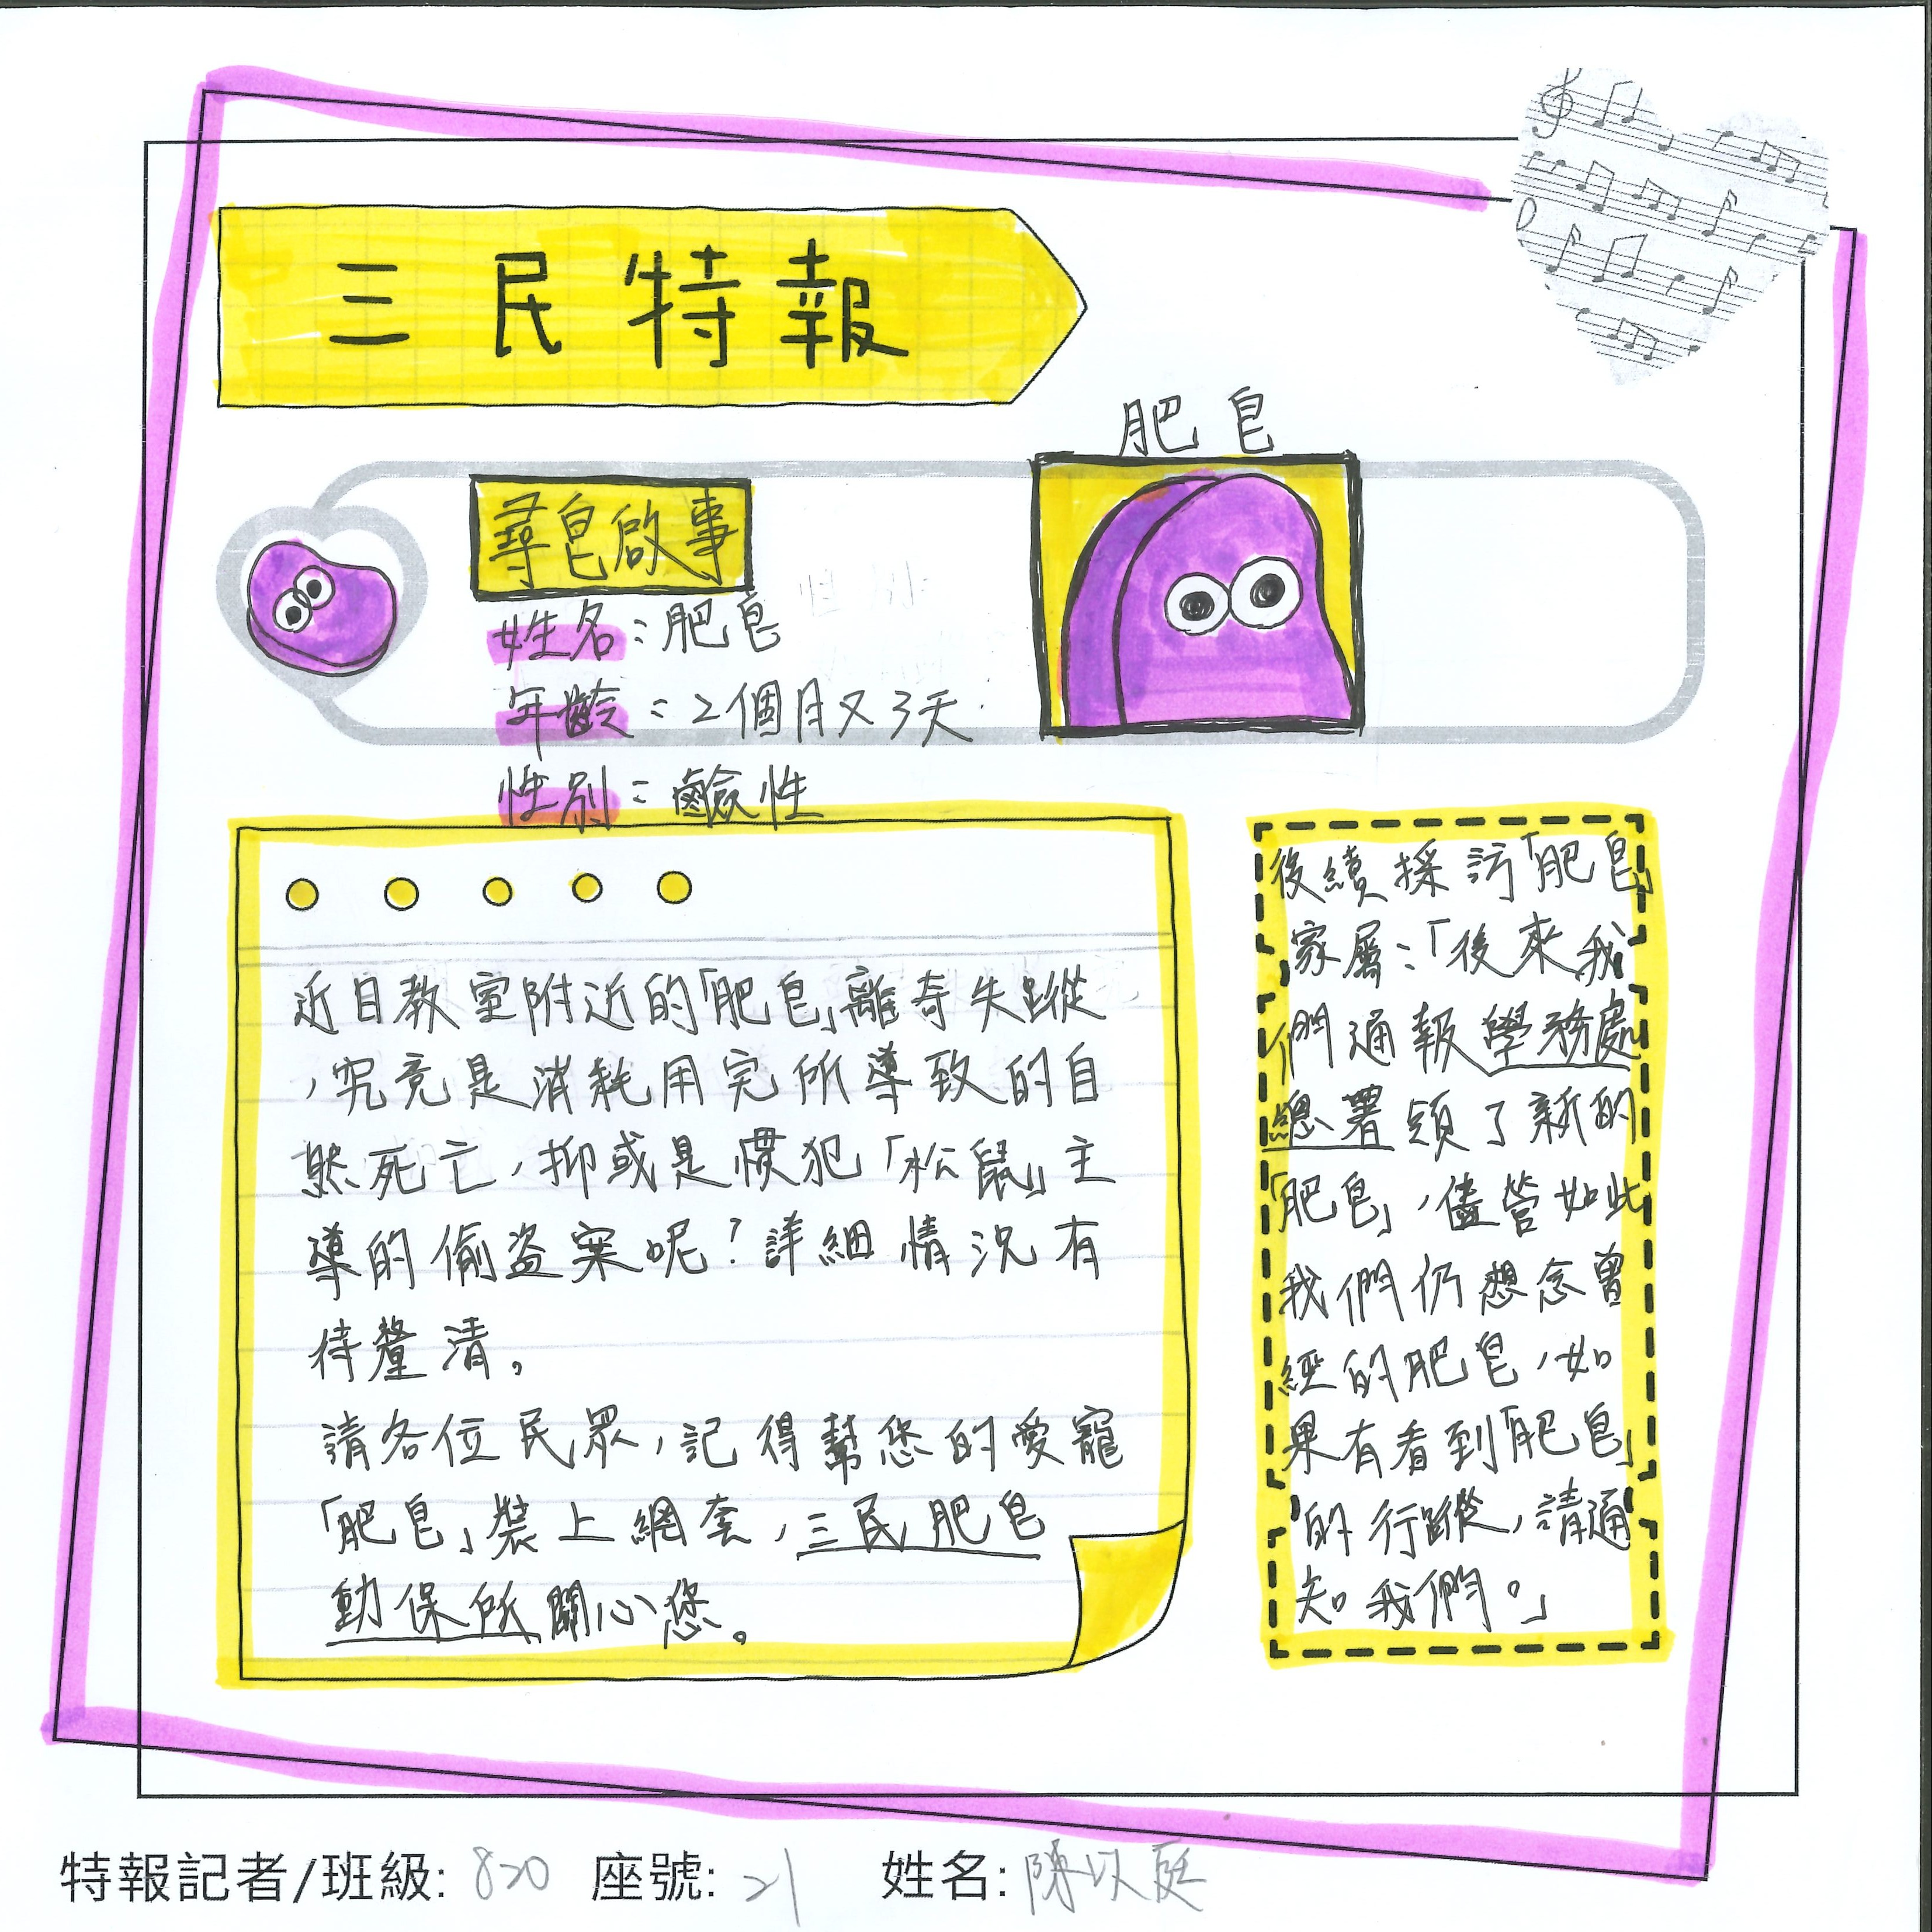 三民特報
肥皂
尋皂啟事
姓名：肥皂
年齡：2個月又3天
性別：鹼性
近日教室附近的「肥皂」離奇失蹤
，究竟是消耗用完所導致的自
然死亡，抑或是慣犯「松鼠」主
導的偷盜案呢？詳細情況有
待釐清。
請各位民眾，記得幫您的愛寵
「肥皂」裝上網套，三民肥皂
動保所關心您。
後續採訪「肥皂」
家屬：「後來我
們通報學務處
總署領了新的
「肥皂」，儘管如此
我們仍想念曾
經的肥皂，如
果有看到「肥皂」
的行蹤，請通
知我們。」
特報記者/班級: 820 座號: 21 姓名: 陳以庭